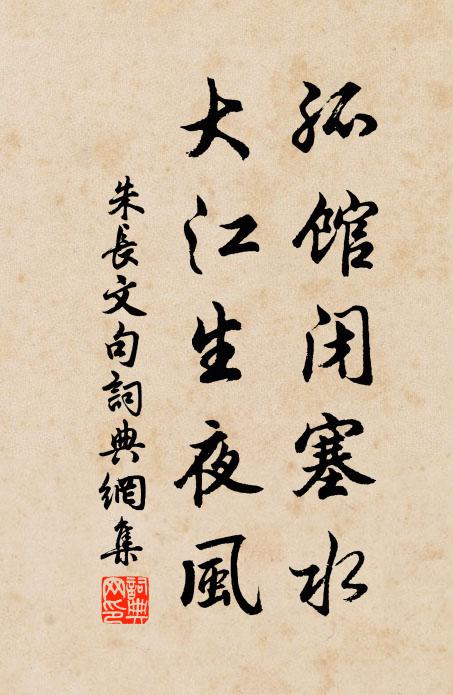 孤館閉塞水
大江生夜風
朱長文句詞典網集
詞典网印